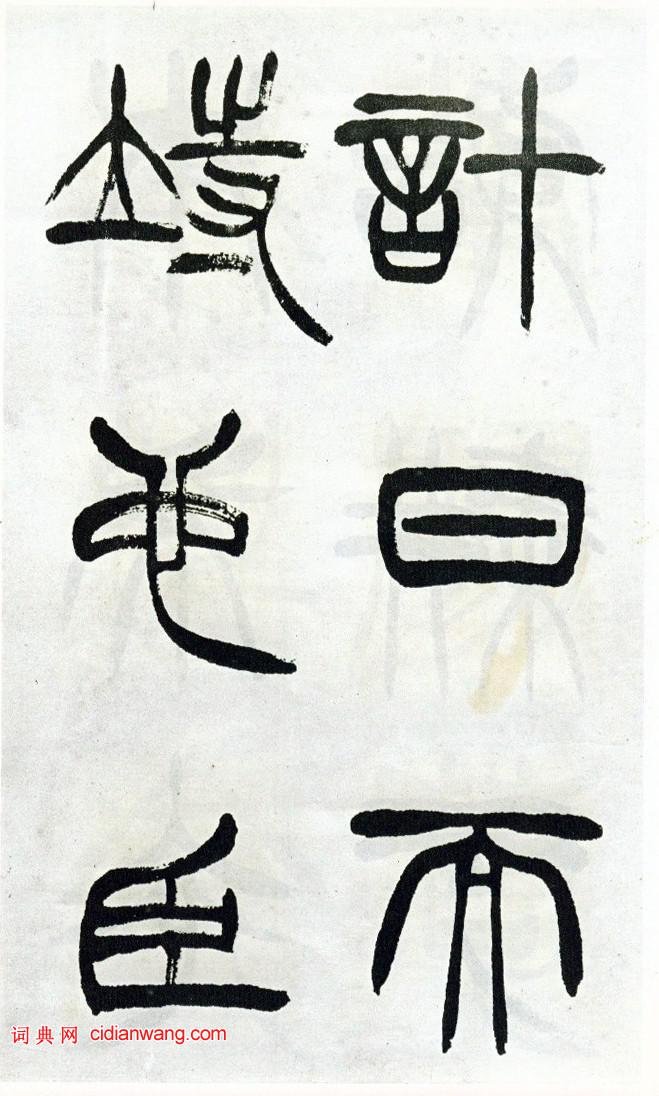 計日而
待也臣
词典网 cidianwang.com